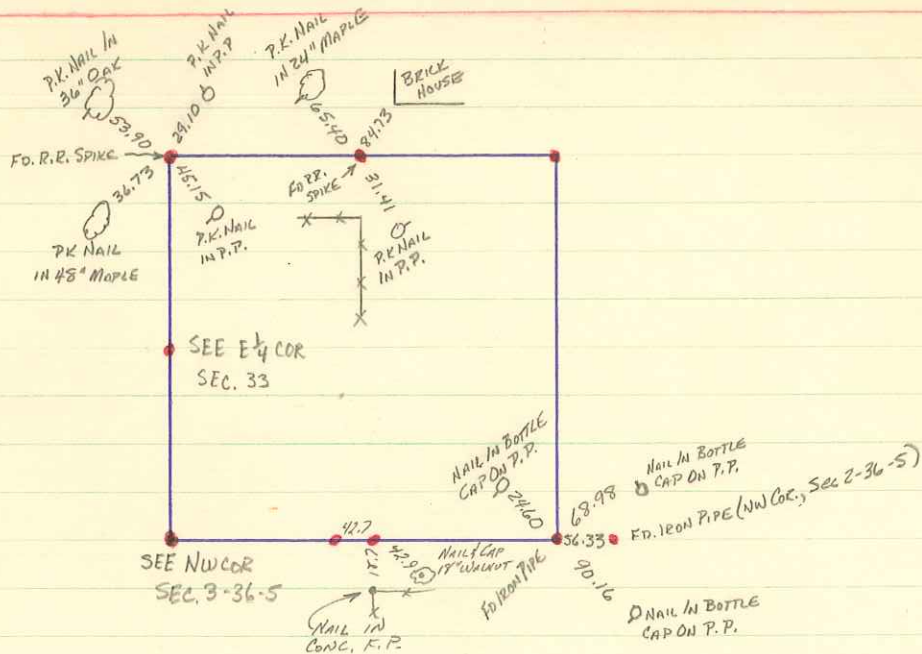 P.K. NAIL IN
36" OAK
53.90
P.K. NAIL
IN P.P
29.10
P.K. NAIL
IN 24" MAPLE
65.40
BRICK
HOUSE
84.73
FD. R.R. SPIKE
36.73
PK NAIL
IN 48" MAPLE
45.15
P.K. NAIL
IN P.P.
FD RR.
SPIKE
31.41
P.K NAIL
IN P.P.
SEE E 1/4 COR
SEC. 33
NAIL IN BOTTLE
CAP ON P.P.
24.60
68.98
NAIL IN BOTTLE
CAP ON P.P.
56.33
FD. IRON PIPE (NW COR., SEC 2-36-5)
90.16
NAIL IN BOTTLE
CAP ON P.P.
FD IRON PIPE
42.7
42.9
NAIL & CAP
18" WALNUT
SEE NW COR
SEC. 3-36-5
NAIL IN
CONC. F.P.